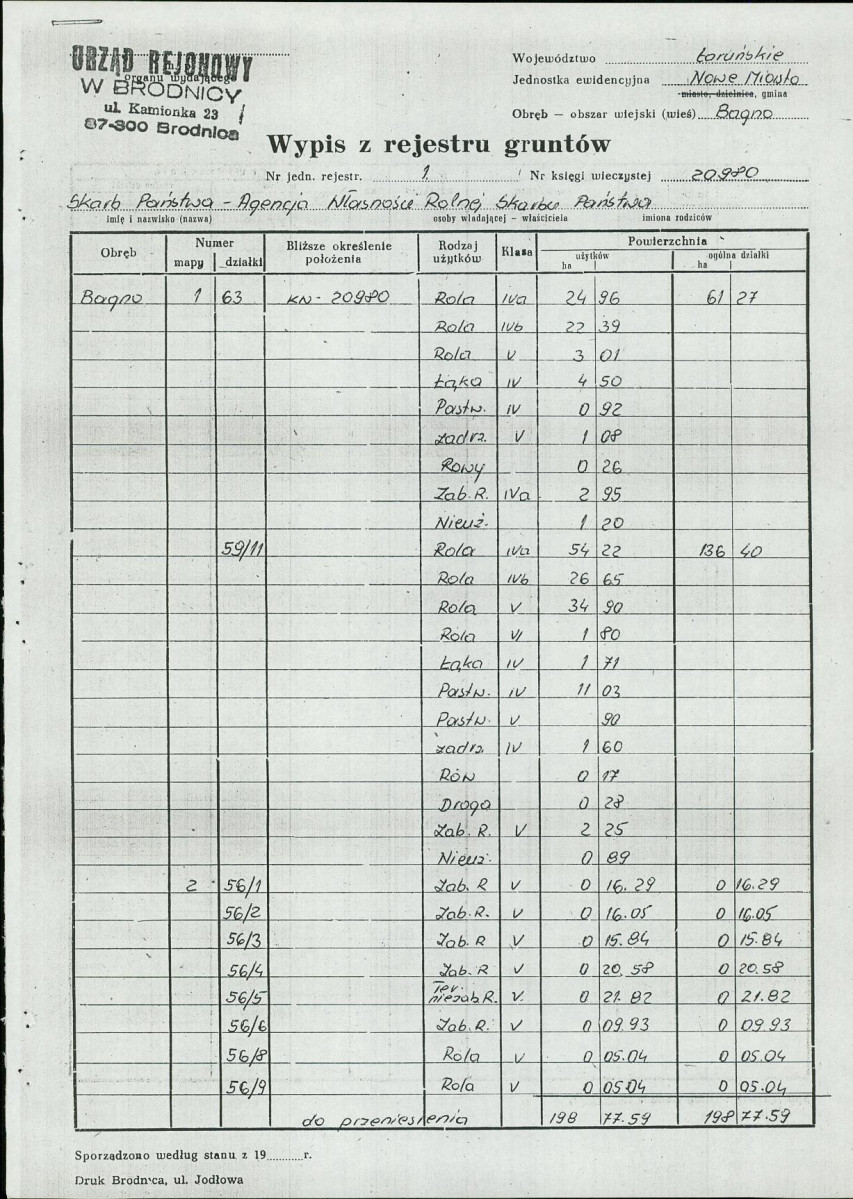 URZĄD REJONOWY
organu wydającego
W BRODNICY
ul. Kamionka 23
87-300 Brodnica
Województwo Toruńskie
Jednostka ewidencyjna Nowe Miasto
miasto, dzielnica, gmina
Obręb — obszar wiejski (wieś) Bagno
Wypis z rejestru gruntów
Nr jedn. rejestr. 1 Nr księgi wieczystej 20980
Skarb Państwa - Agencja Własności Rolnej Skarbu Państwa
imię i nazwisko (nazwa) osoby władającej — właściciela imiona rodziców
Obręb Numer Bliższe określenie położenia Rodzaj użytków Klasa Powierzchnia
mapy działki użytków ogólna działki
ha ha
Bagno 1 63 KN - 20980 Rola IVa 24 96 61 27
Rola IVb 22 39
Rola V 3 01
Łąka IV 4 50
Pastw. IV 0 92
zadrz. V 1 08
Rowy 0 26
Zab. R. IVa 2 95
Nieuż. 1 20
59/11 Rola IVa 54 22 136 40
Rola IVb 26 65
Rola V 34 90
Rola VI 1 80
Łąka IV 1 71
Pastw. IV 11 03
Pastw. V 90
zadrz. IV 1 60
Rów 0 17
Droga 0 28
Zab. R. V 2 25
Nieuż. 0 89
2 56/1 Zab. R V 0 16.29 0 16.29
56/2 Zab. R. V 0 16.05 0 16.05
56/3 Zab. R V 0 15.84 0 15.84
56/4 Zab. R V 0 20.58 0 20.58
56/5 Ter. niezab. R. V. 0 21.82 0 21.82
56/6 Zab. R. V 0 09.93 0 09.93
56/8 Rola V 0 05.04 0 05.04
56/9 Rola V 0 05.04 0 05.04
do przeniesienia 198 77.59 198 77.59
Sporządzono według stanu z 19..........r.
Druk Brodnica, ul. Jodłowa